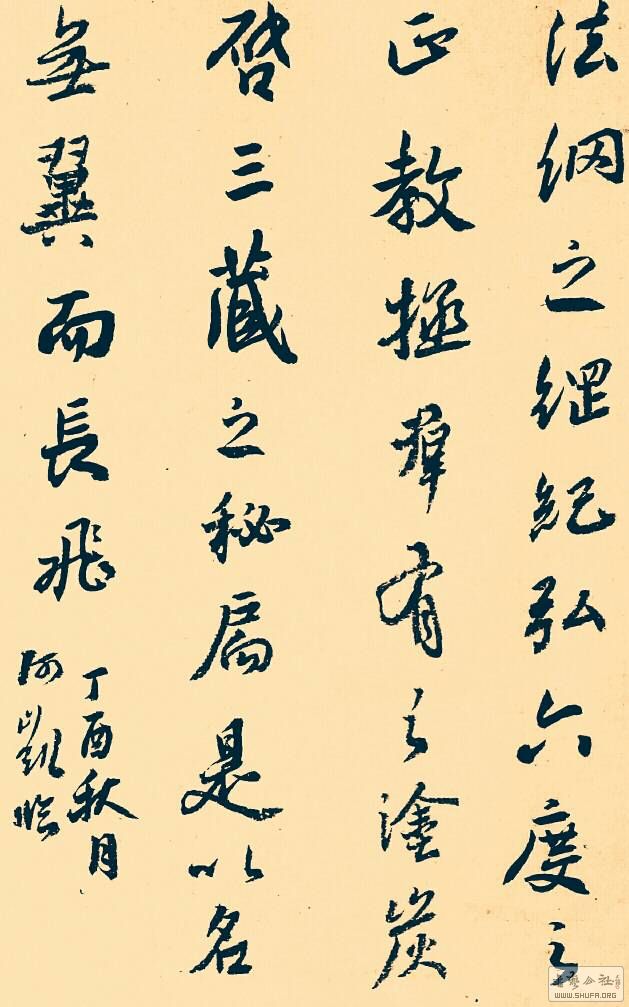 法網之綱紀弘六度之
正教拯羣有之塗炭
啓三藏之秘扃是以名
無翼而長飛
丁酉秋月
凱臨
書藝公社
WWW.SHUFA.ORG